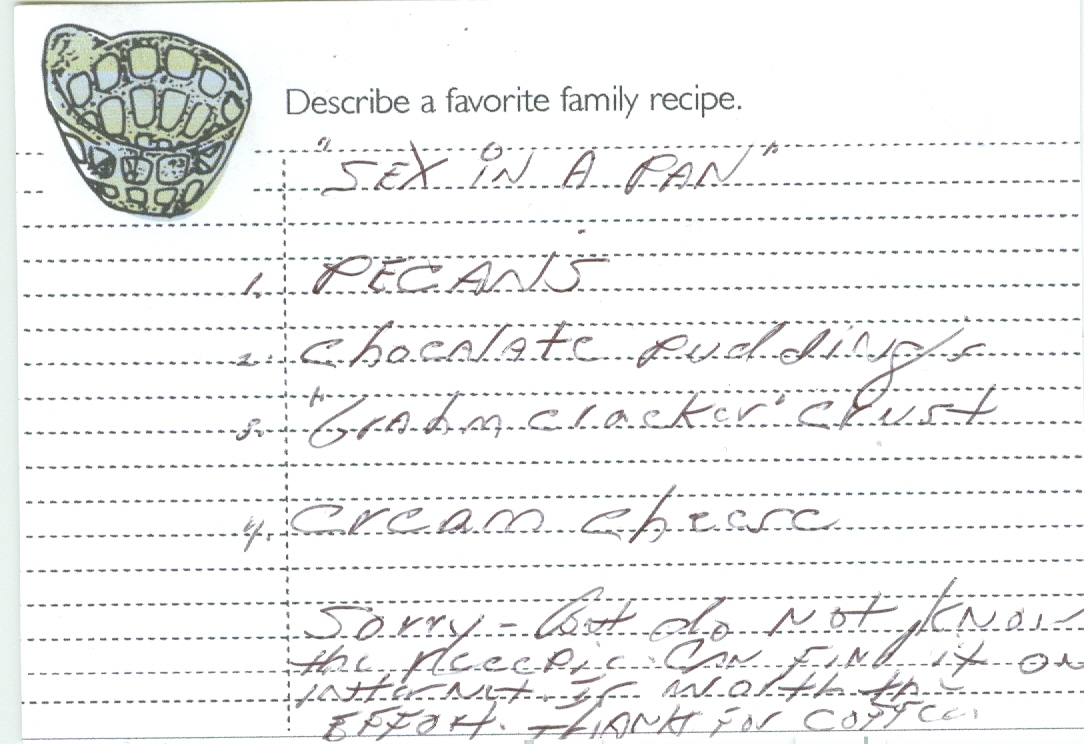 Describe a favorite family recipe.
"SEX IN A PAN"
1. PECANS
2. Chocalate pudding's
3. "Grahm cracker" crust
4. Cream cheese
Sorry - but do Not KNOW
the receepie. CAN FIND it ON
INterNet. IS worth the
EFFORT. tHANK FOR COFFEE.